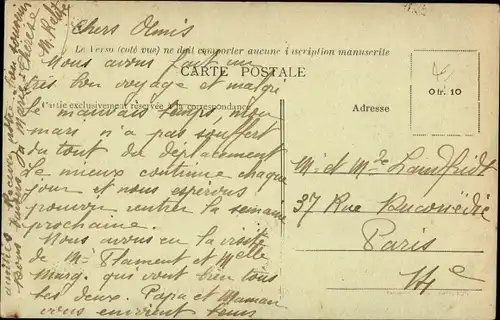 Chers Amis
Le Verso (coté vue) ne doit comporter aucune inscription manuscrite
CARTE POSTALE
Partie exclusivement réservée à la correspondance
Adresse
0 fr. 10
Nous avons fait un
très bon voyage et malgré
le mauvais temps, mon
mari n'a pas souffert
du tout du déplacement
Le mieux continue chaque
jour et nous espérons
pouvoir rentrer la semaine
prochaine.
Nous avons eu la visite
de Mr Flament et Melle
Marg. qui vont bien tous
les deux. Papa et Maman
vous envoient leurs
amitiés. Recevez notre bon souvenir
M. et Mme
37 Rue
Paris